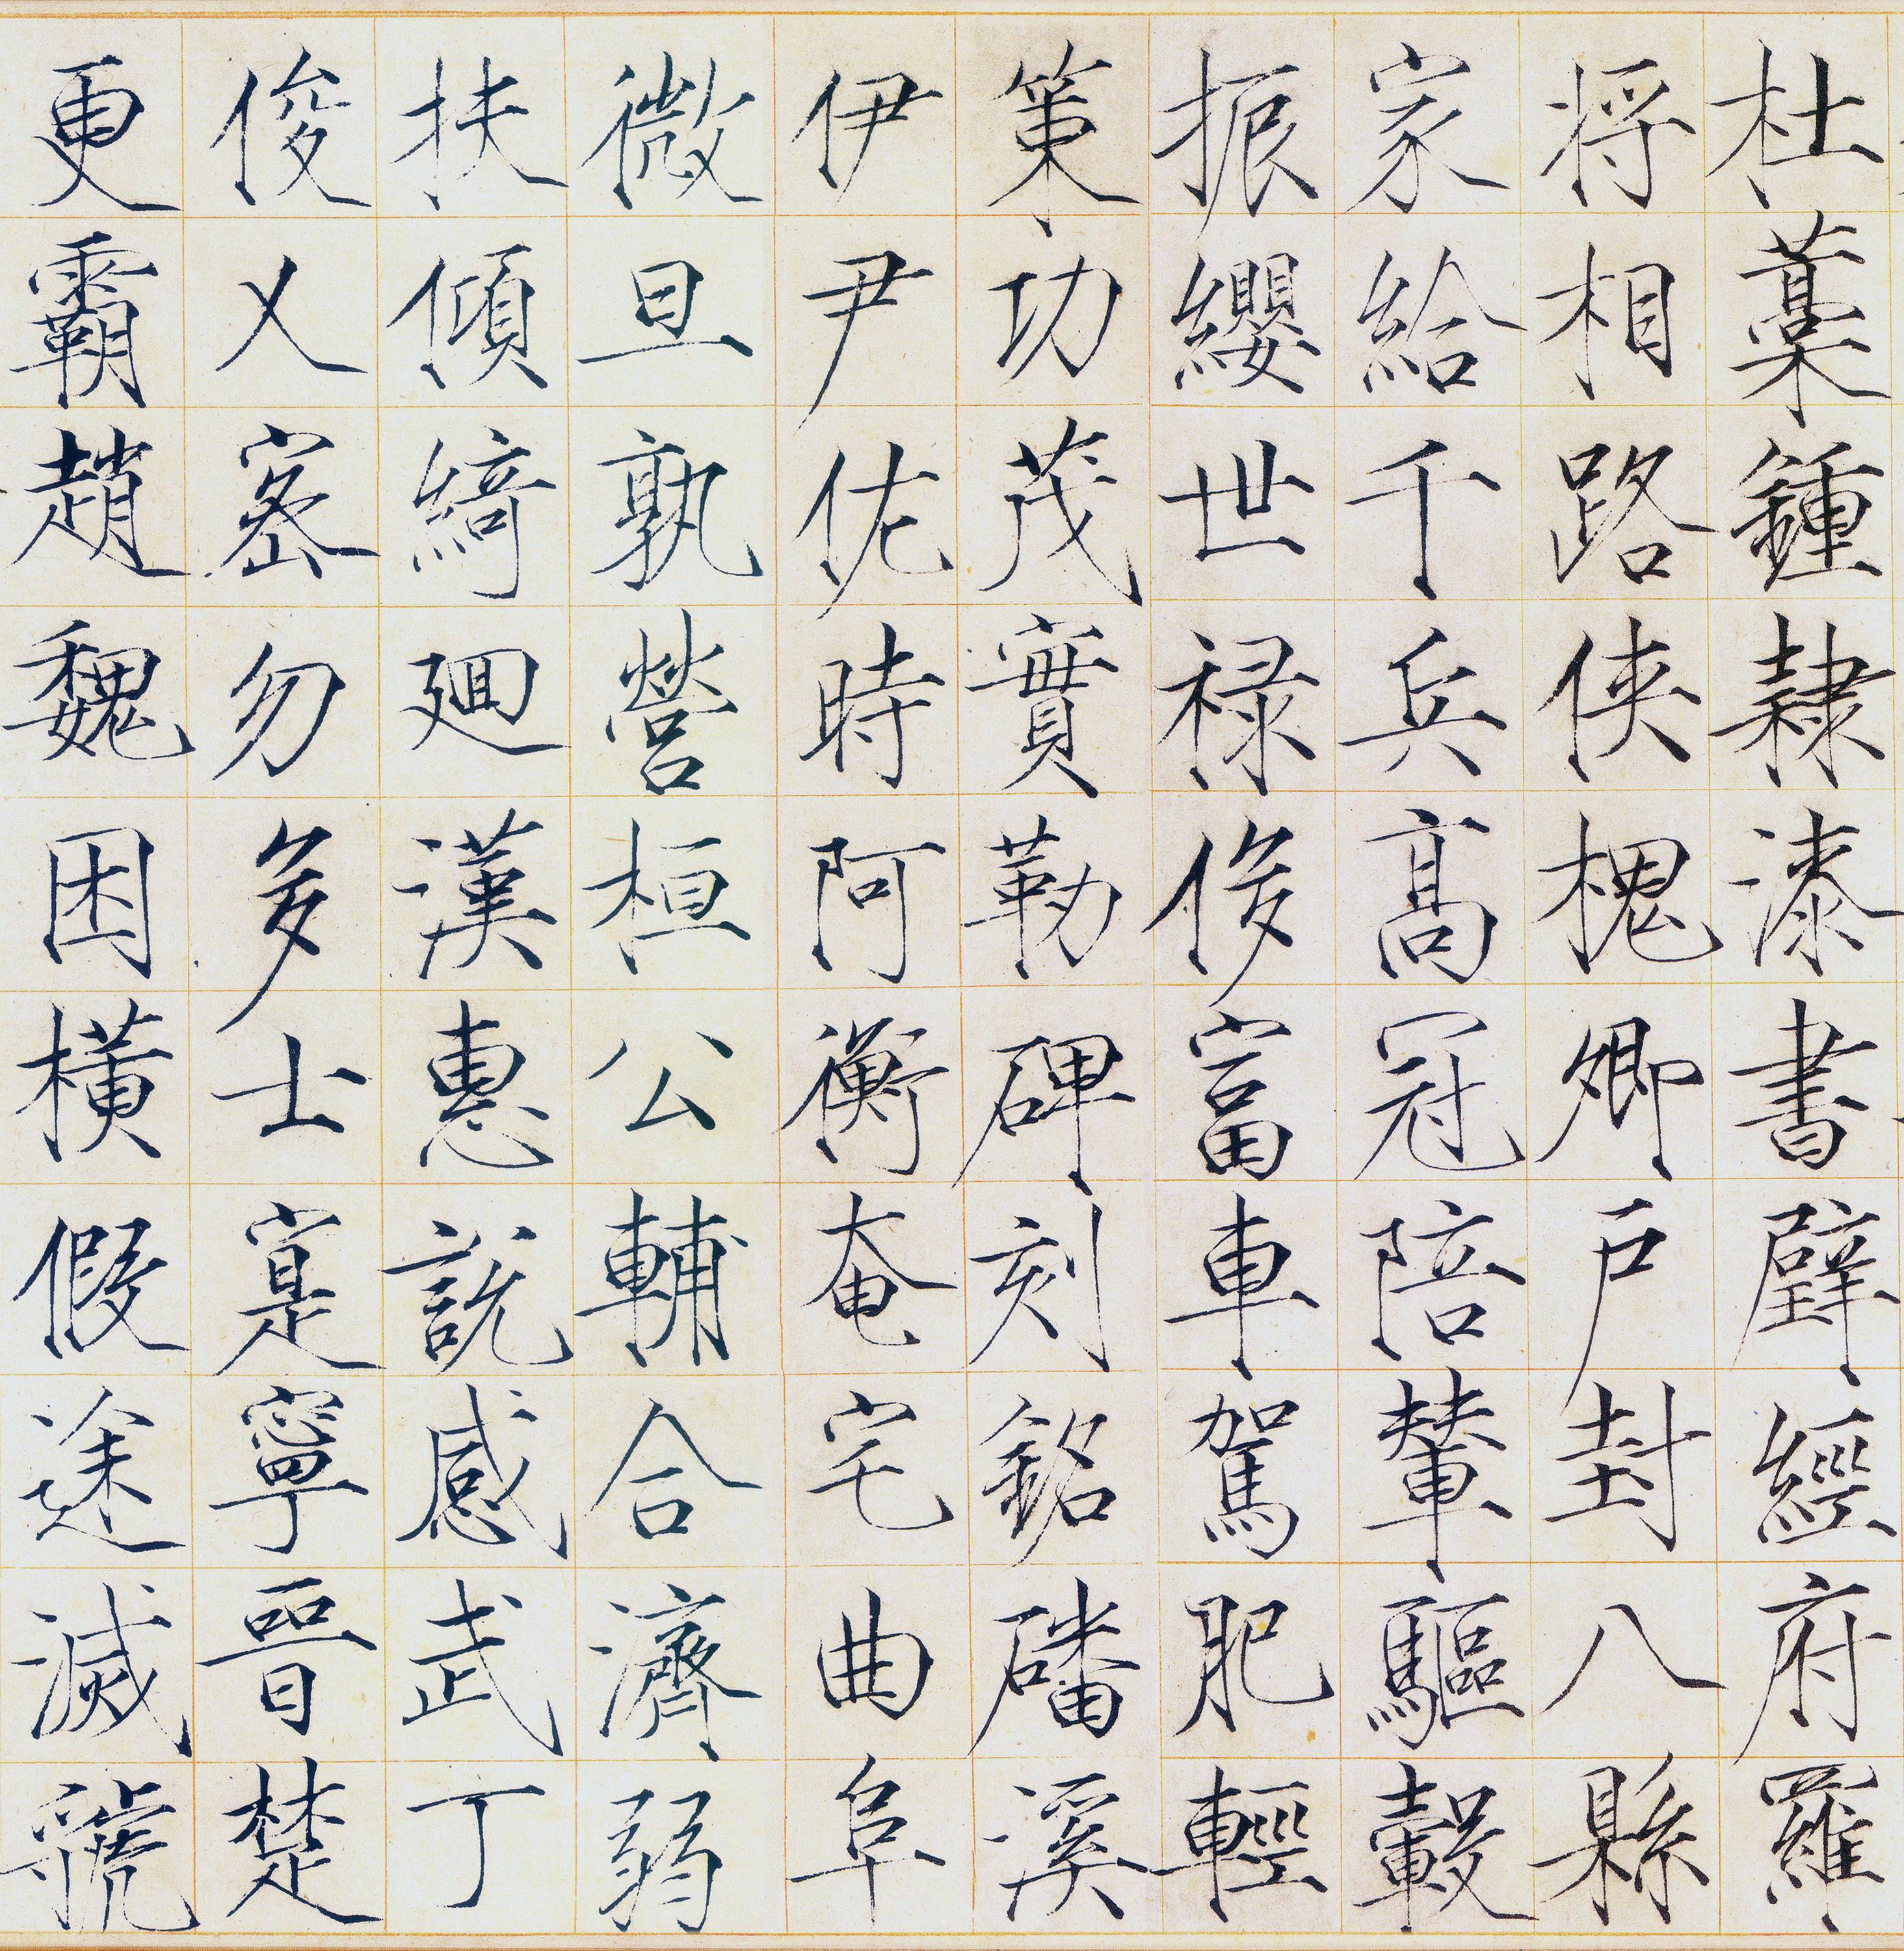 杜藁鍾隸漆書壁經府羅
將相路俠槐卿戶封八縣
家給千兵高冠陪輦驅轂
振纓世祿侈富車駕肥輕
策功茂實勒碑刻銘磻溪
伊尹佐時阿衡奄宅曲阜
微旦孰營桓公輔合濟弱
扶傾綺迴漢惠說感武丁
俊乂密勿多士寔寧晉楚
更霸趙魏困橫假途滅虢